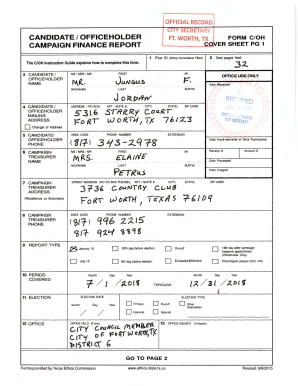 OFFICIAL RECORD
CITY SECRETARY
FT. WORTH, TX
CANDIDATE / OFFICEHOLDER
CAMPAIGN FINANCE REPORT
FORM C/OH
COVER SHEET PG 1
The C/OH Instruction Guide explains how to complete this form.
1 Filer ID (Ethics Commission Filers)
2 Total pages filed:
32
3 CANDIDATE / OFFICEHOLDER NAME
MS / MRS / MR FIRST MI
MR. Jungus F.
NICKNAME LAST SUFFIX
Jordan
OFFICE USE ONLY
Date Received
4 CANDIDATE / OFFICEHOLDER MAILING ADDRESS
Change of Address
ADDRESS / PO BOX; APT / SUITE #; CITY; STATE; ZIP CODE
5316 STARRY COURT
FORT WORTH, TX 76123
5 CANDIDATE/ OFFICEHOLDER PHONE
AREA CODE PHONE NUMBER EXTENSION
(817) 343-2978
Date Hand-delivered or Date Postmarked
6 CAMPAIGN TREASURER NAME
MS / MRS / MR FIRST MI
MRS. ELAINE
NICKNAME LAST SUFFIX
PETRUS
Receipt # Amount $
Date Processed
Date Imaged
7 CAMPAIGN TREASURER ADDRESS
(Residence or Business)
STREET ADDRESS (NO PO BOX PLEASE); APT / SUITE #; CITY; STATE; ZIP CODE
3736 COUNTRY CLUB
FORT WORTH, TEXAS 76109
8 CAMPAIGN TREASURER PHONE
AREA CODE PHONE NUMBER EXTENSION
(817) 996 2215
817 924 8898
9 REPORT TYPE
January 15
30th day before election
Runoff
15th day after campaign treasurer appointment (Officeholder Only)
July 15
8th day before election
Exceeded $500 limit
Final Report (Attach C/OH - FR)
10 PERIOD COVERED
Month Day Year
7 / 1 / 2018
THROUGH
Month Day Year
12 / 31 / 2018
11 ELECTION
ELECTION DATE
Month Day Year
ELECTION TYPE
Primary
Runoff
Other Description
General
Special
12 OFFICE
OFFICE HELD (if any)
CITY COUNCIL MEMBER
CITY OF FORT WORTH
DISTRICT 6
13 OFFICE SOUGHT (if known)
GO TO PAGE 2
Forms provided by Texas Ethics Commission
www.ethics.state.tx.us
Revised 9/8/2015